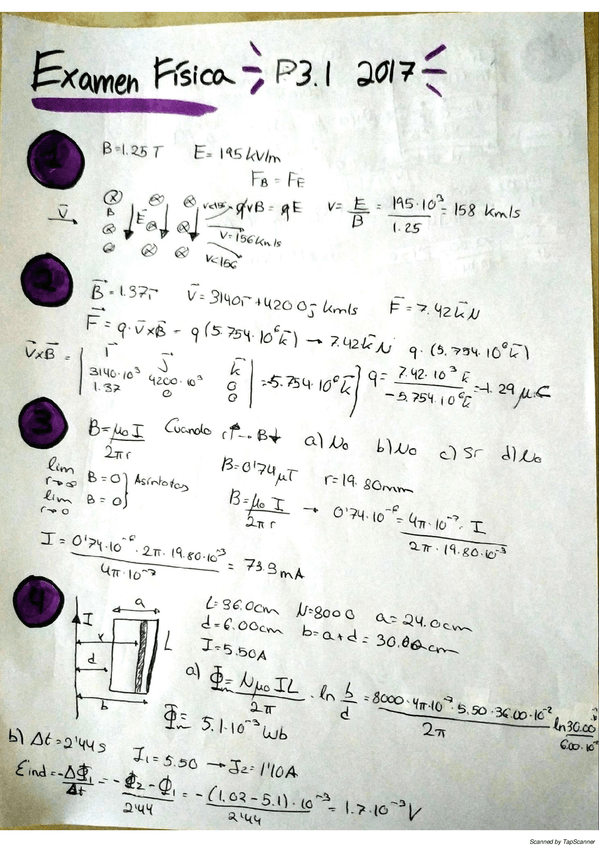 Examen Física P3.1 2017
1
B=1.25T E=195kV/m
F_B = F_E
V⃗ B E⃗ v<156 qvB = qE v=E/B = 195·10³/1.25 = 158 km/s
V=156km/s
v<156
2
B⃗=1.37i⃗ v⃗=3140i⃗+4200j⃗ km/s F⃗=7.42k⃗N
F⃗=q·v⃗xB⃗ = q(5.754·10⁶k⃗) → 7.42k⃗N q·(5.754·10⁶k⃗)
v⃗xB⃗ = | i⃗ j⃗ k⃗ |
| 3140·10³ 4200·10³ 0 | =-5.754·10⁶k⃗ } q= 7.42·10³k⃗/-5.754·10⁶k⃗ =-1.29μC
| 1.37 0 0 |
3
B=μ₀I/2πr Cuando r↑→B↓ a) No b) No c) Sí d) No
lim r→∞ B=0 } Asíntotas B=0'74μT r=19.80mm
lim r→0 B=0 B=μ₀I/2πr → 0'74·10⁻⁶=4π·10⁻⁷·I/2π·19.80·10⁻³
I= 0'74·10⁻⁶·2π·19.80·10⁻³/4π·10⁻⁷ = 73.3mA
4
I a x L d b
L=36.0cm N=8000 a=24.0cm
d=6.00cm b=a+d=30.00cm
I=5.50A
a) Φm= Nμ₀IL/2π · ln b/d = 8000·4π·10⁻⁷·5.50·36.00·10⁻²/2π ln 30.00/6.00·10⁻
Φm= 5.1·10⁻³Wb
b) Δt=2'44s I₁=5.50 → I₂=1'10A
Eind=-ΔΦ₁/Δt = -Φ₂-Φ₁/2'44 = -(1.02-5.1)·10⁻³/2'44 = 1.7·10⁻³V
Scanned by TapScanner